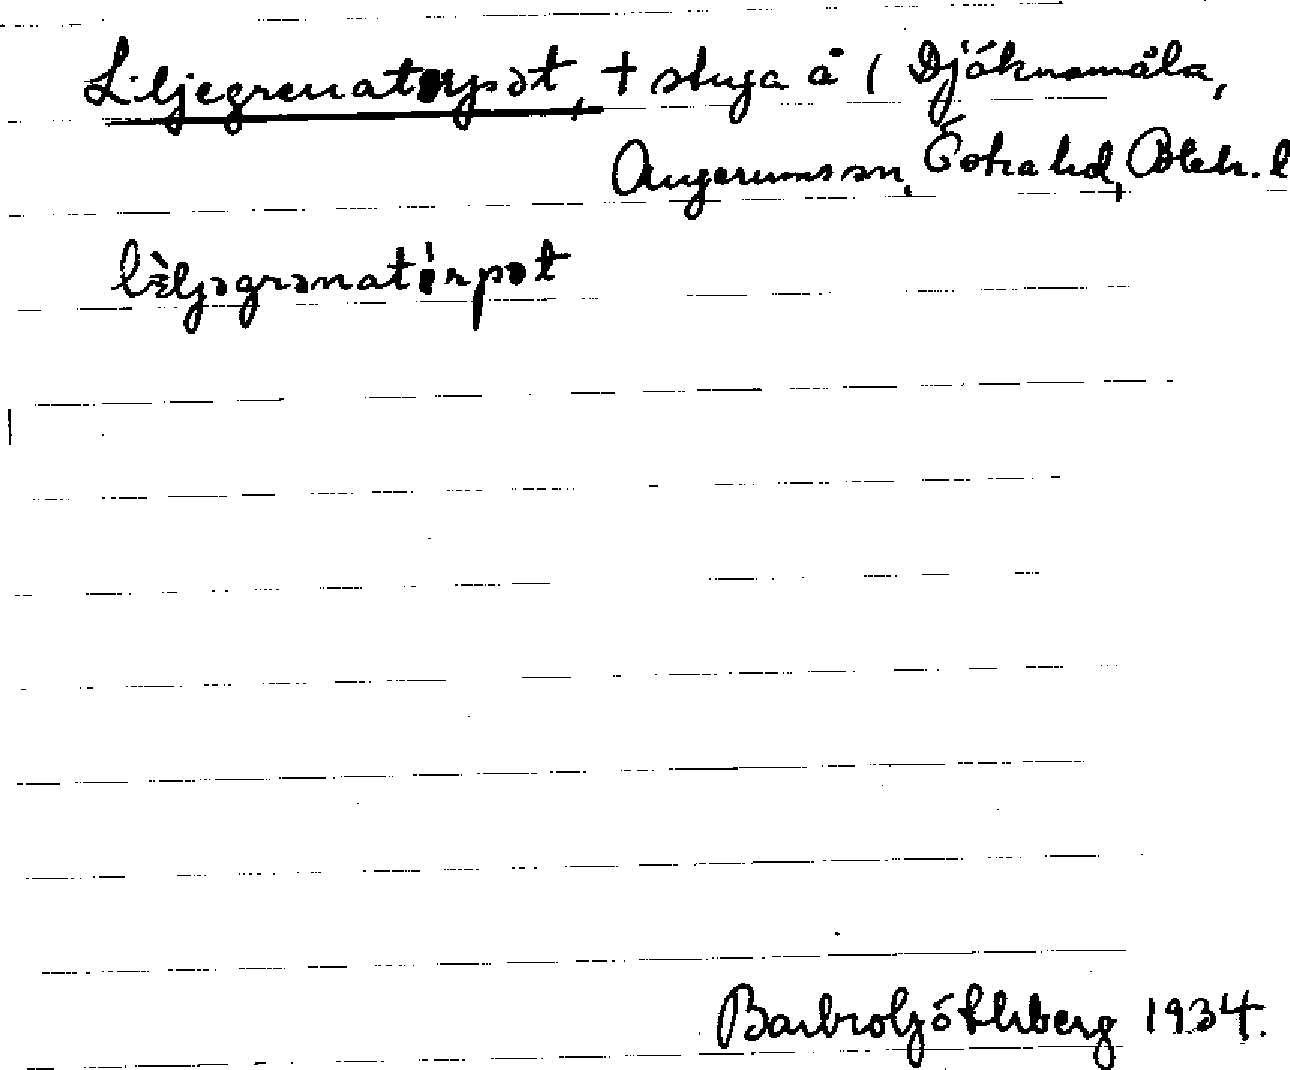 Liljegrenatorpət, + stuga å 1 Djäknamåla,
Augerums sn, Östra hd, Blek. l
lìljəgrənatórpət
Barbro Götherberg 1934.